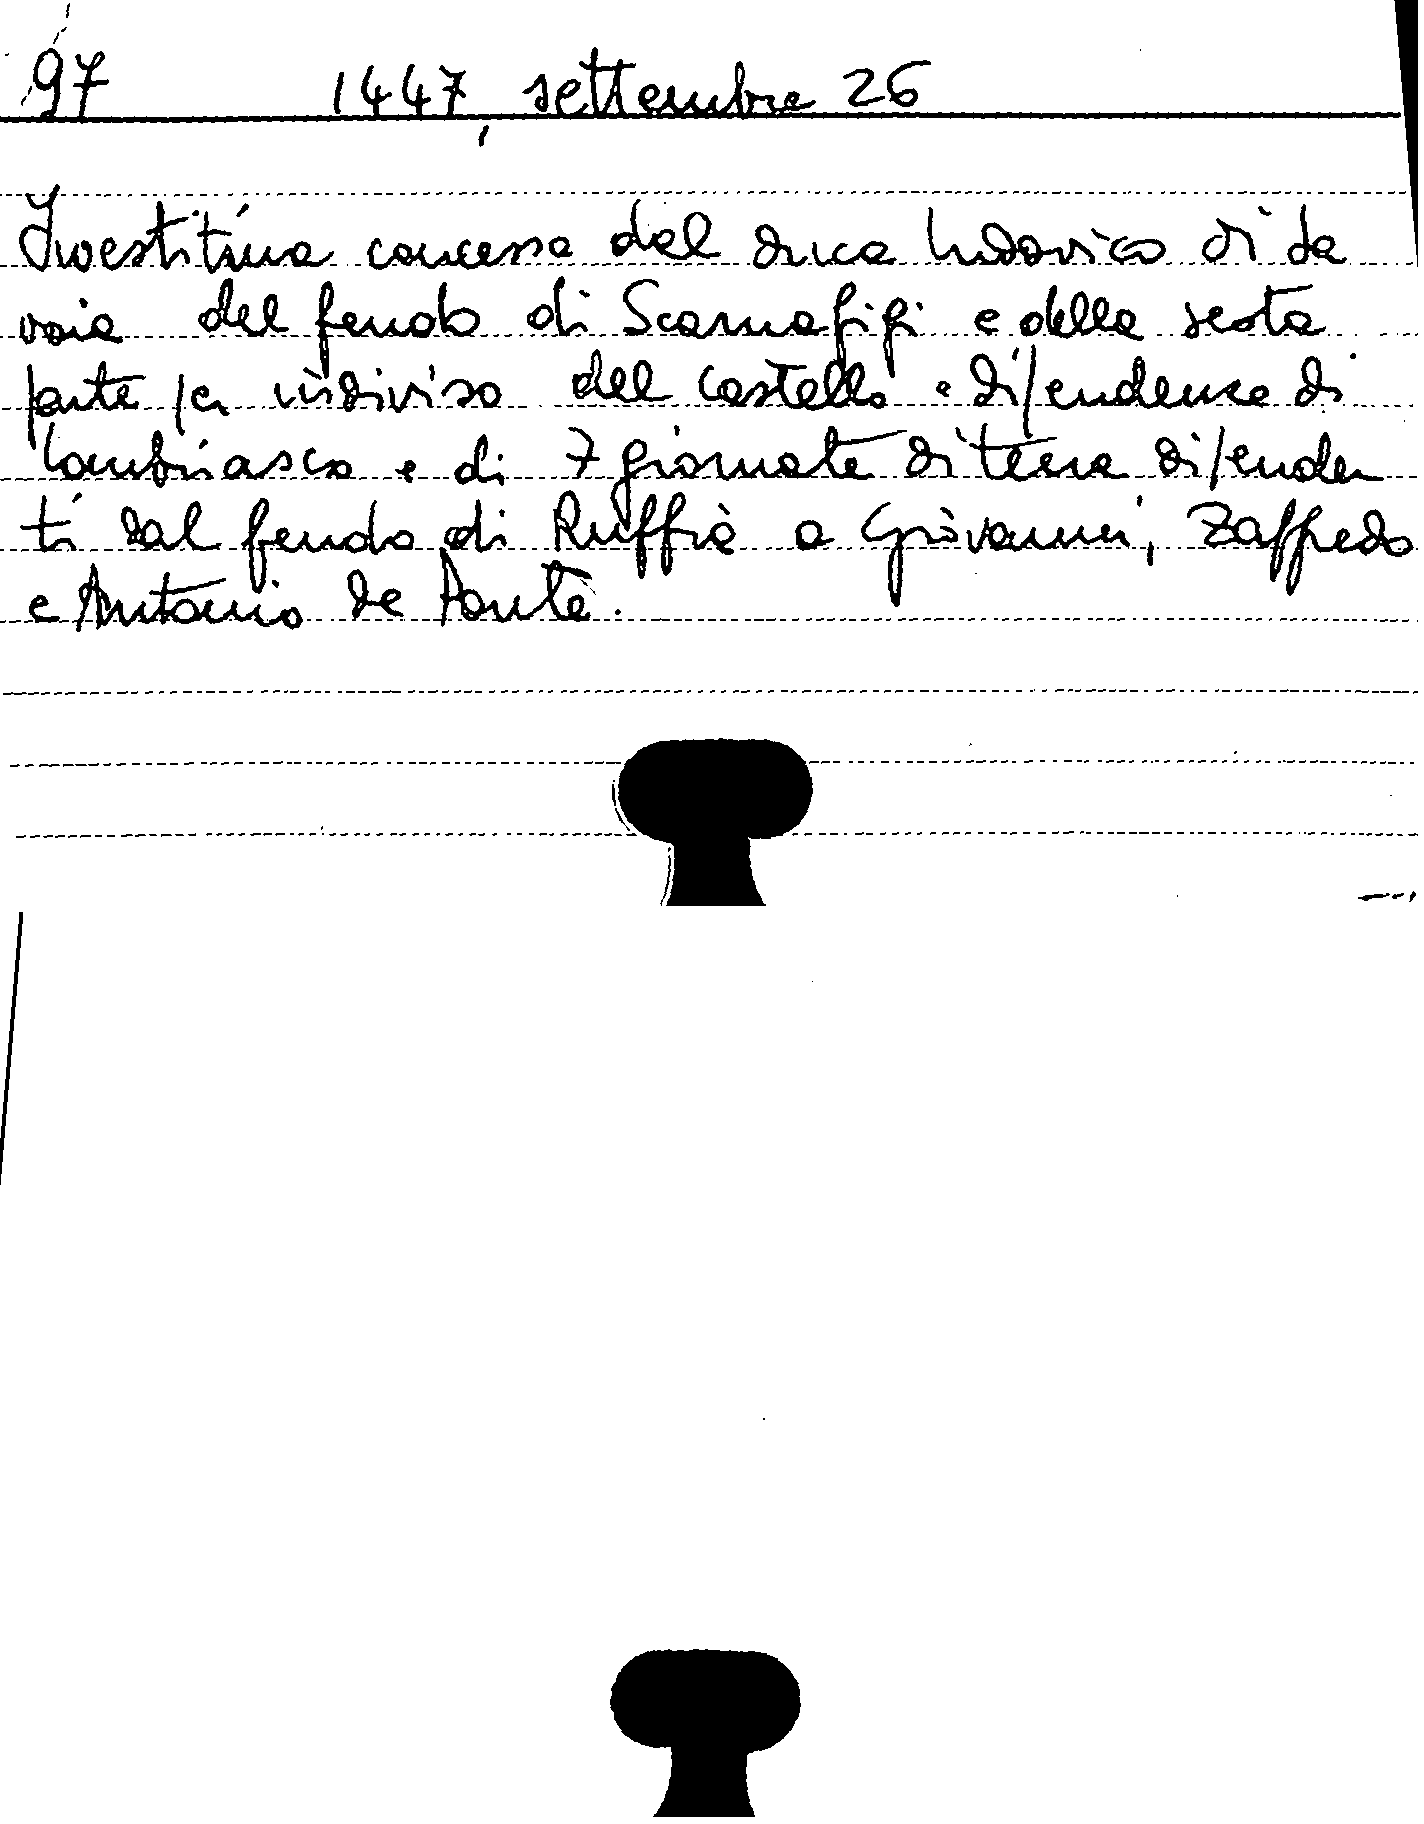 97 1447, settembre 26
Investitura concessa dal duca Ludovico di Sa
voia del feudo di Scarnafigi e della sesta
parte per indiviso del castello e dipendenze di
Lombriasco e di 7 giornate di terra dipenden
ti dal feudo di Ruffia a Giovanni, Zaffredo
e Antonio de Ponte.